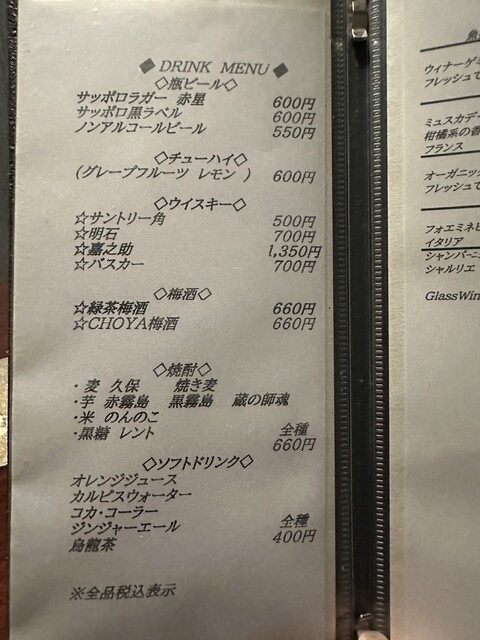 ◆ DRINK MENU ◆
◇瓶ビール◇
サッポロラガー 赤星 600円
サッポロ黒ラベル 600円
ノンアルコールビール 550円
◇チューハイ◇
(グレープフルーツ レモン ) 600円
◇ウイスキー◇
☆サントリー角 500円
☆明石 700円
☆嘉之助 1,350円
☆バスカー 700円
◇梅酒◇
☆緑茶梅酒 660円
☆CHOYA梅酒 660円
◇焼酎◇
・麦 久保 焼き麦
・芋 赤霧島 黒霧島 蔵の師魂
・米 のんのこ
・黒糖 レント 全種
660円
◇ソフトドリンク◇
オレンジジュース
カルピスウォーター
コカ・コーラー
ジンジャーエール 全種
烏龍茶 400円
※全品税込表示
ウィナーゲミ
フレッシュで
ミュスカデー
柑橘系の香
フランス
オーガニック
フレッシュで
フォエミネピ
イタリア
シャンパーニュ
シャルリエ
GlassWin